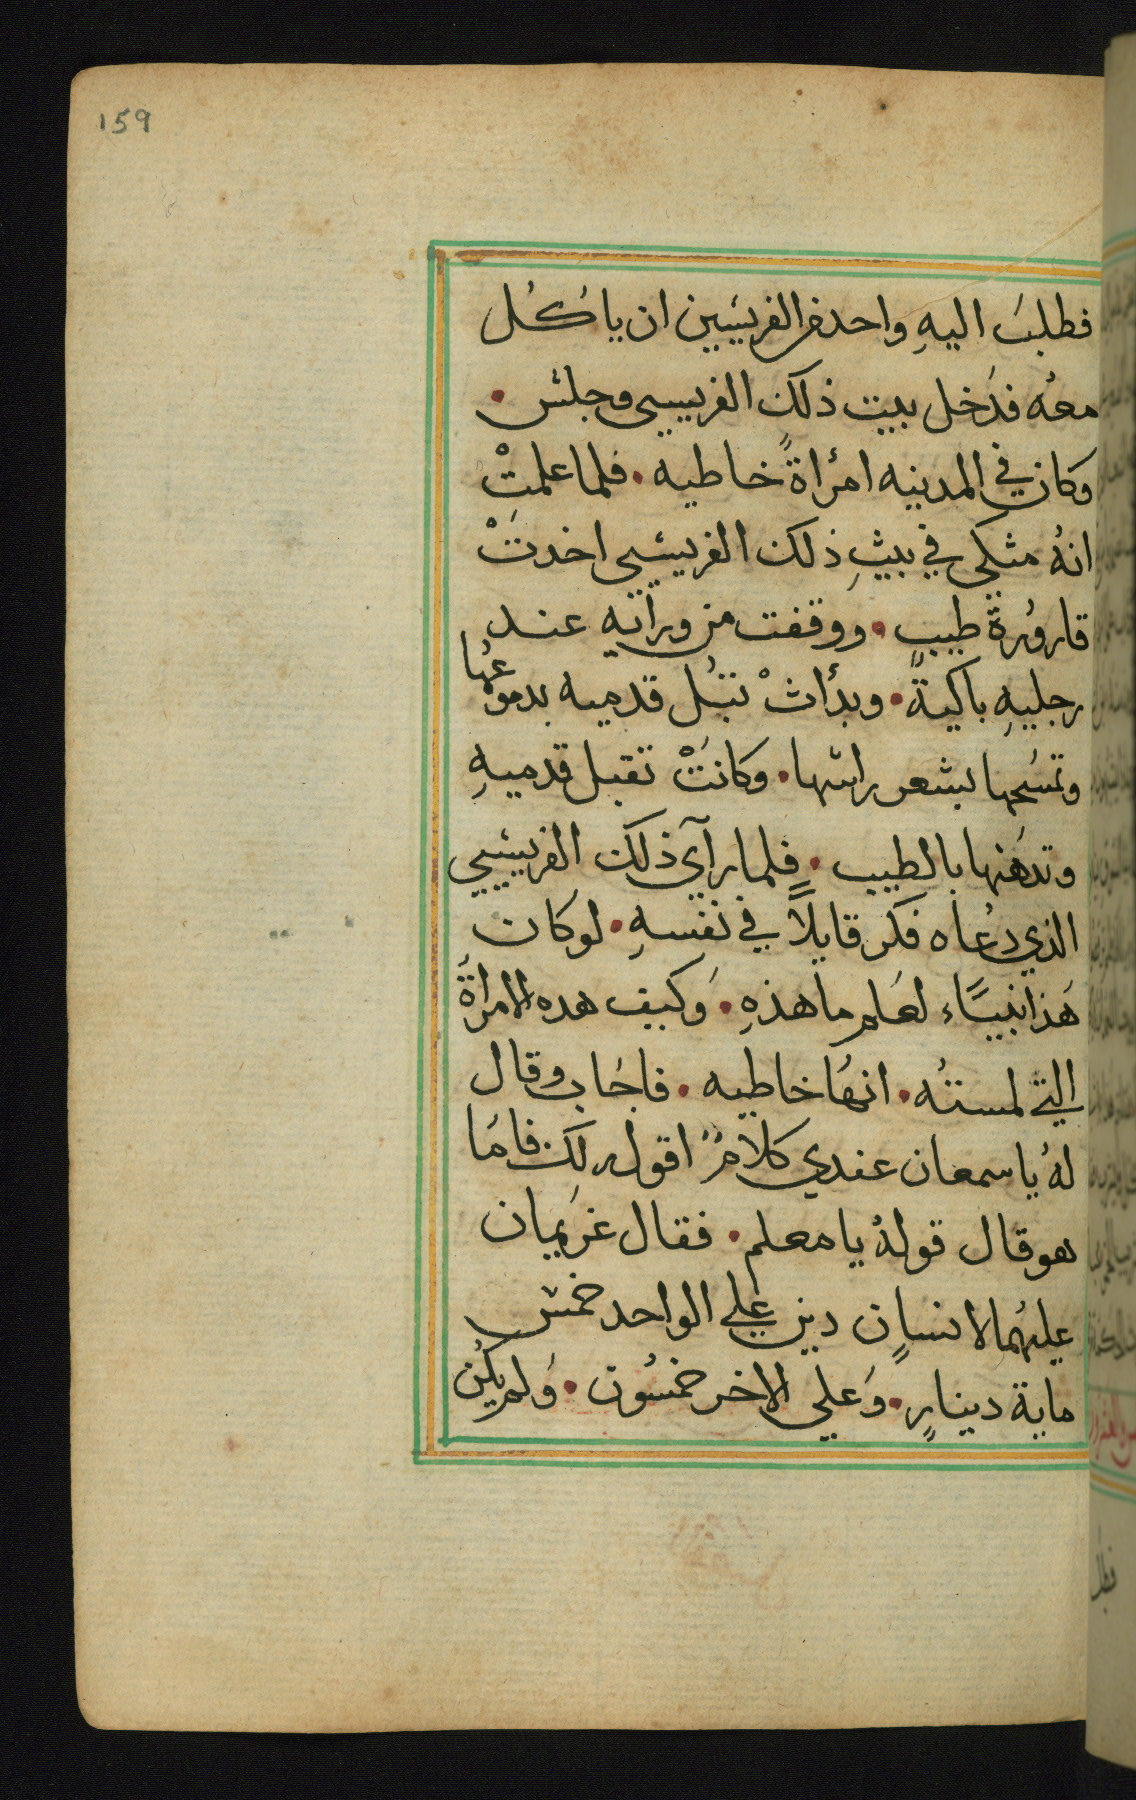 159
فطلبَ اليهِ واحد من الفريسيين ان ياكُل
معهُ فدَخل بيت ذلك الفريسي وجلس •
وكان في المدينه امرأةً خاطيه • فلما علمتْ
انهُ متكي في بيتِ ذلك الفريسي اخدتْ
قارورةَ طيبٍ • ووقفت من ورائهِ عند
رجليهِ باكيةً • وبدأتْ تبُل قدميه بدموعها
وتمسَحها بشعر راسها • وكانتْ تقبل قدميهِ
وتدهَنها بالطيب • فلما رآي ذلك الفريسي
الذي دعاه فكر قايلاً في نفسهِ • لو كان
هَذا نبيـًاء لعَلم ما هذهِ • وَكيف هده الامراةَ
التي لمستهُ • انهَا خاطيه • فاجَاب وقال
لهُ يا سمعان عندي كلامٌ اقول لك فامَا
هو قال قولهُ يا معلم • فقال غرَيمان
عليهُما لانسانٍ دين علي الواحد خمس
ماية دينارٍ • وَعلي الاخر خمسُون • وَلم يكُن